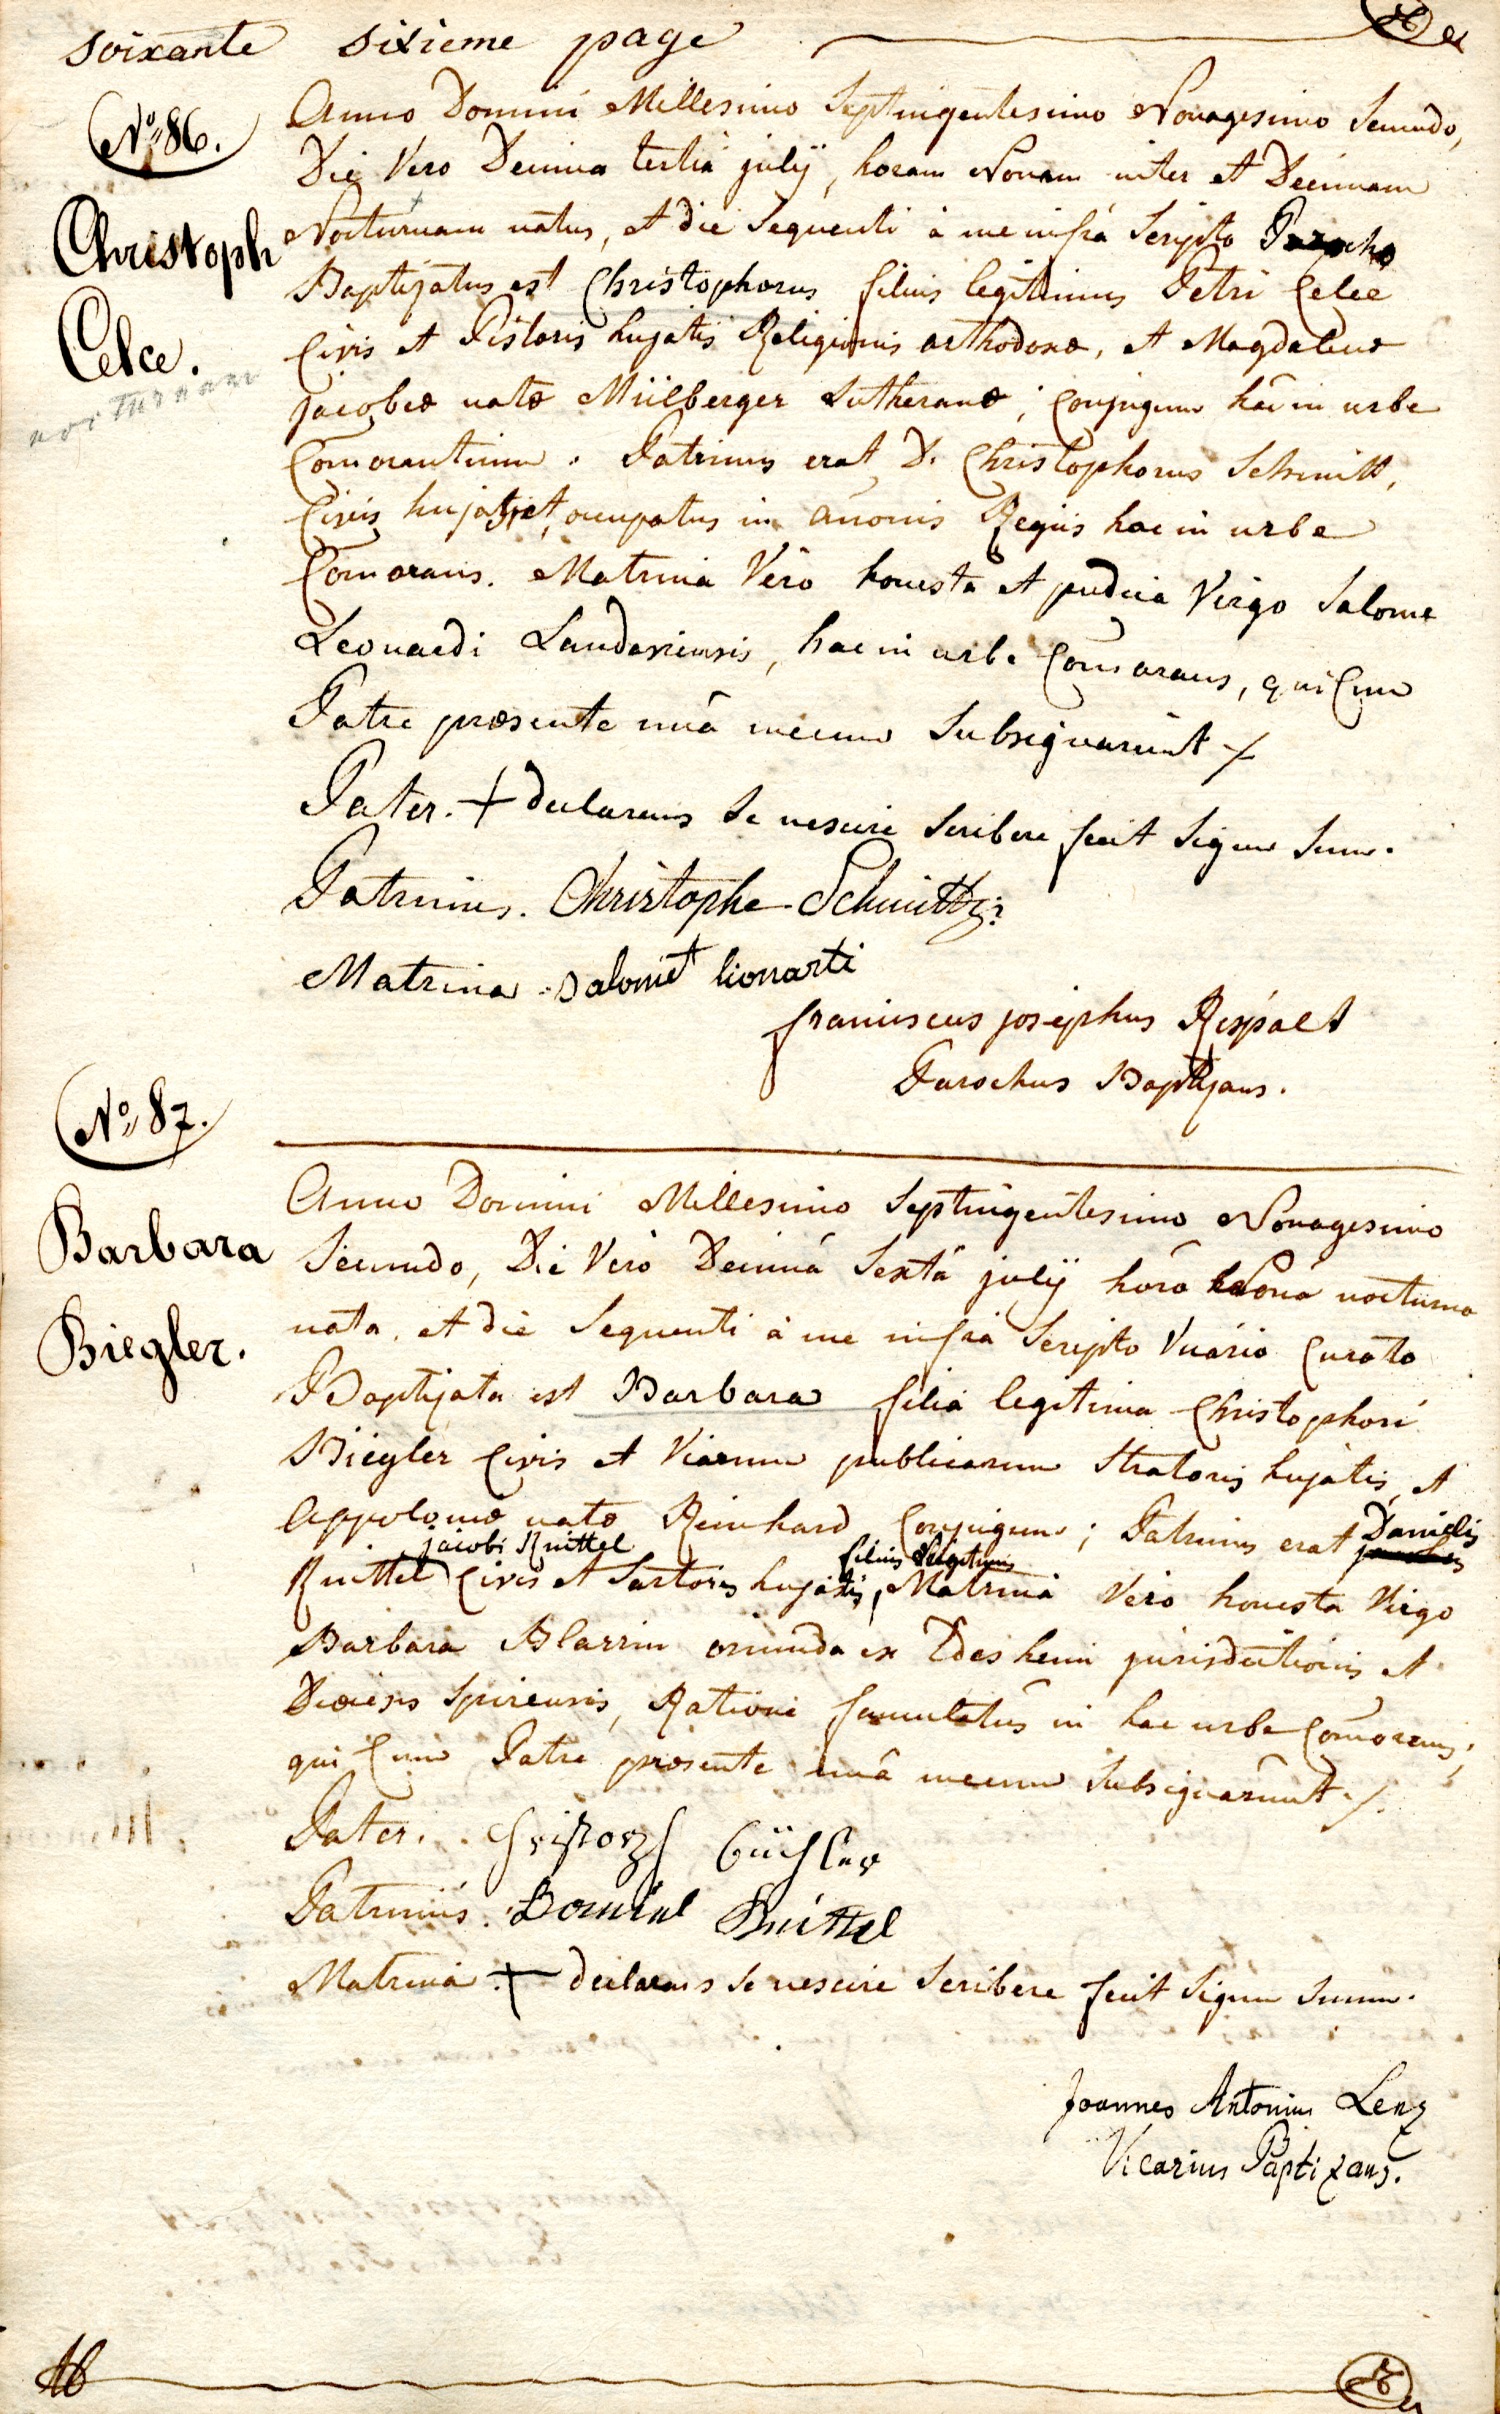 soixante sixieme page
No 86.
Christoph
Celce.
Anno Domini Millesimo Septingentesimo Nonagesimo Secundo,
Die Vero Decima tertiâ julÿ, horam Nonam inter et Decimam
Nocturnam natus, et die Sequenti à me infrà Scripto Parocho
Baptizatus est Christophorus filius legitimus Petri Celce
Civis et Pistoris hujatis Religionis orthodoxæ, et Magdalenæ
jacobeæ natæ Müllberger Lutheranæ, Conjugum hâc in urbe
Comorantium. Patrinus erat D. Christophorus Schmitt,
Civis hujas, et occupatus in Annonis Regiis hac in urbe
Comorans. Matrina Vero honesta et pudica Virgo Salome
Leonardi Landaviensis, hac in urbe Com̄orans, qui Cum
Patre præsente unâ mecum Subsignarunt ⁄.
Pater. + declarans Se nescire Scribere fecit Signum Suum.
Patrinus. Christophe Schmitt
Matrina Salome lionarti
franciscus josephus Rispalt
Parochus Baptizans.
No 87.
Barbara
Biegler.
Anno Domini Millesimo Septingentesimo Nonagesimo
Secundo, Die Vero Decimâ Sextâ julÿ horâ Nonâ nocturna
nata, et die Sequenti à me infrà Scripto Vicario Curato
Baptizata est Barbara filia legitima Christophori
Biegler Civis et Viarum publicarum Stratoris hujatis, et
Appoloniæ natæ Reinhard Conjugum; Patrinus erat Danielis
jacobi Knittel filius Legitimus
Knittel Civis et Sartoris hujatis, Matrina Vero honesta Virgo
Barbara Blarrin oriunda ex Edesheim jurisdictionis et
Diœcesis Spirensis, Ratione famulatûs in hac urbe Com̄orans;
qui Cum Patre præsente unâ mecum Subsignarunt ⁄.
Pater. Christoph Büchler
Patrinus. Daniel Knittel
Matrina + declarans Se nescire Scribere fecit Signum Suum.
Joannes Antonius Lenz
Vicarius Baptizans.